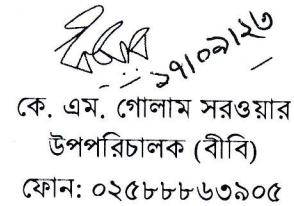 ১৭/০৯/২৩
কে. এম. গোলাম সরওয়ার
উপপরিচালক (বীবি)
ফোন: ০২৫৮৮৮৬৩৯০৫